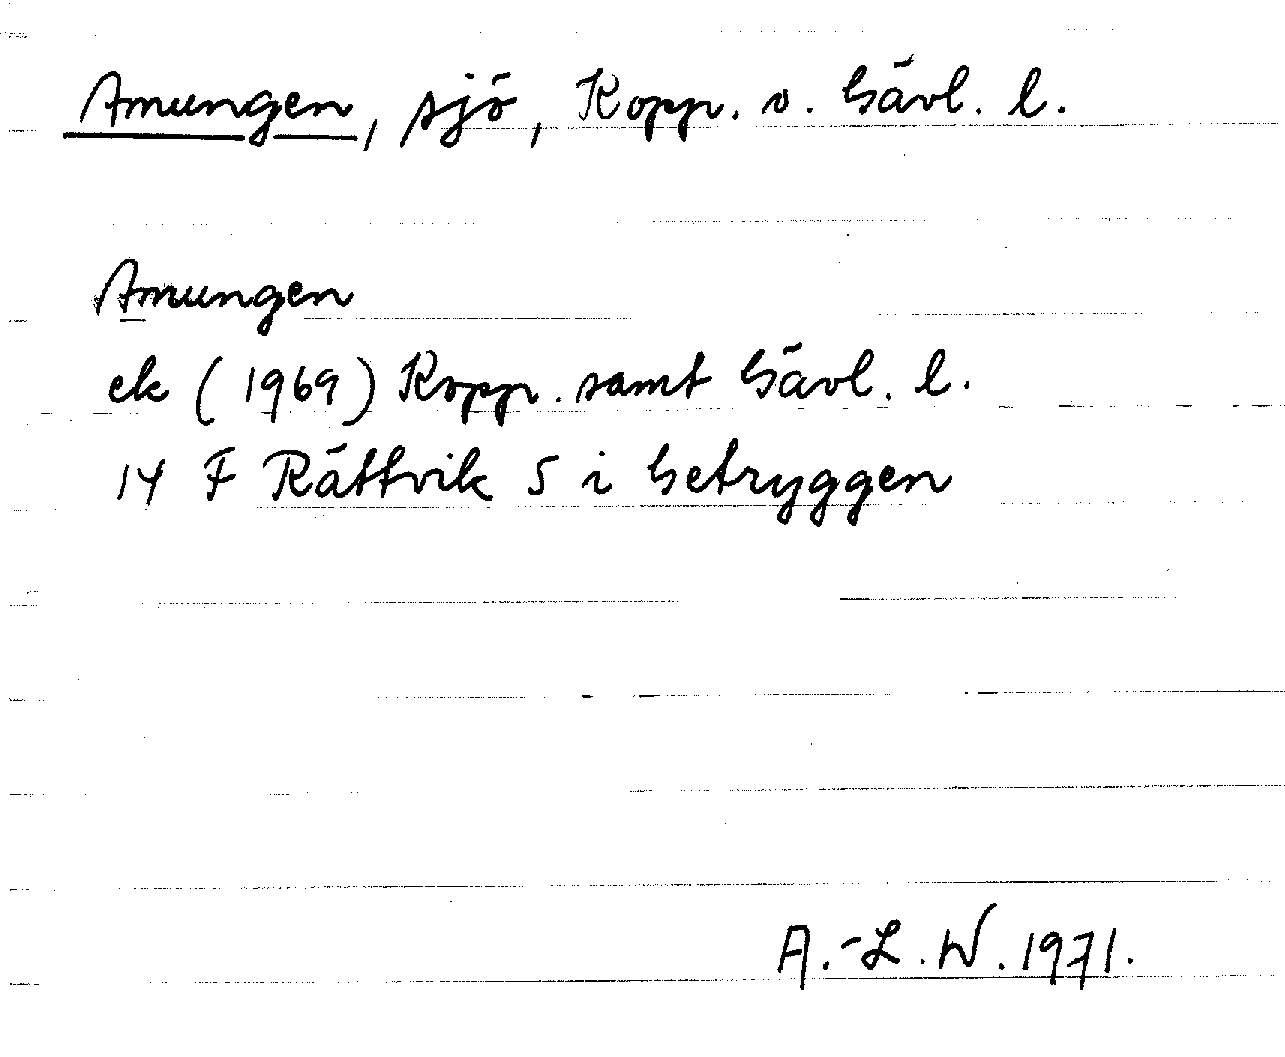 Amungen, sjö, Kopp. o. Gävl. l.
Amungen
ek (1969) Kopp. samt Gävl. l.
14 F Rättvik S i betryggen
A.-L. W. 1971.